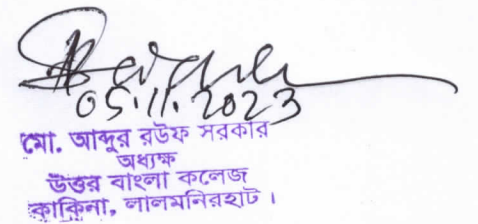 05.11.2023
মো. আব্দুর রউফ সরকার
অধ্যক্ষ
উত্তর বাংলা কলেজ
কাকিনা, লালমনিরহাট।